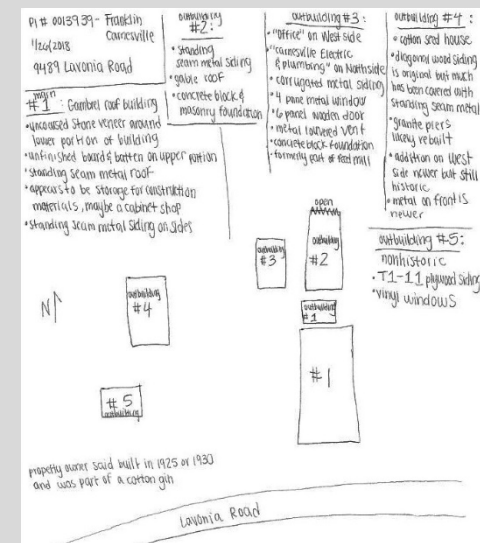 PI# 0013939- Franklin
Carnesville
1/26/2018
9489 Lavonia Road
main
#1: Gambrel roof building
•uncoursed stone veneer around
lower portion of building
•unfinished board & batten on upper portion
•standing seam metal roof
•appears to be storage for construction
materials, maybe a cabinet shop
•standing seam metal siding on sides
outbuilding
#2:
•standing
seam metal siding
•gable roof
•concrete block &
masonry foundation
outbuilding #3:
•"Office" on West side
•"Carnesville Electric
& plumbing" on Northside
•corrugated metal siding
•4 pane metal window
•6 panel wooden door
•metal louvered vent
•concrete block foundation
•formerly part of feed mill
outbuilding #4:
•cotton seed house
•diagonal wood siding
is original but much
has been covered with
standing seam metal
•granite piers
rebuilt
•addition on West
side newer but still
historic
•metal on front is
newer
outbuilding #5:
nonhistoric
•T1-11 plywood siding
•vinyl windows
open
outbuilding
#3
outbuilding
#2
outbuilding
#1
#1
N
outbuilding
#4
#5
outbuilding
property owner said built in 1925 or 1930
and was part of a cotton gin
Lavonia Road